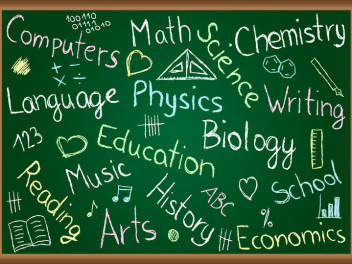 100110
01111
01010
Computers
Math
Science
Chemistry
+ -
× ÷
Language
Physics
Writing
123
Education
Biology
Music
Reading
History
ABC
School
Arts
%
Economics